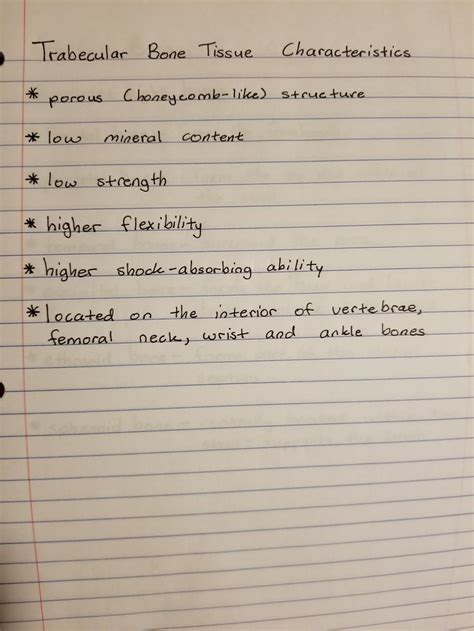 Trabecular Bone Tissue Characteristics
* porous (honeycomb-like) structure
* low mineral content
* low strength
* higher flexibility
* higher shock-absorbing ability
* located on the interior of vertebrae,
femoral neck, wrist and ankle bones